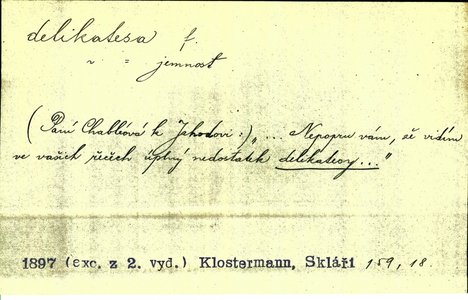 delikatesa f.
" = jemnost
(Paní Chabléová k Jahodovi:) „... Nepopru vám, že vidím
ve vašich řečech úplný nedostatek delikatesy..."
1897 (exc. z 2. vyd.) Klostermann, Skláři 159, 18.